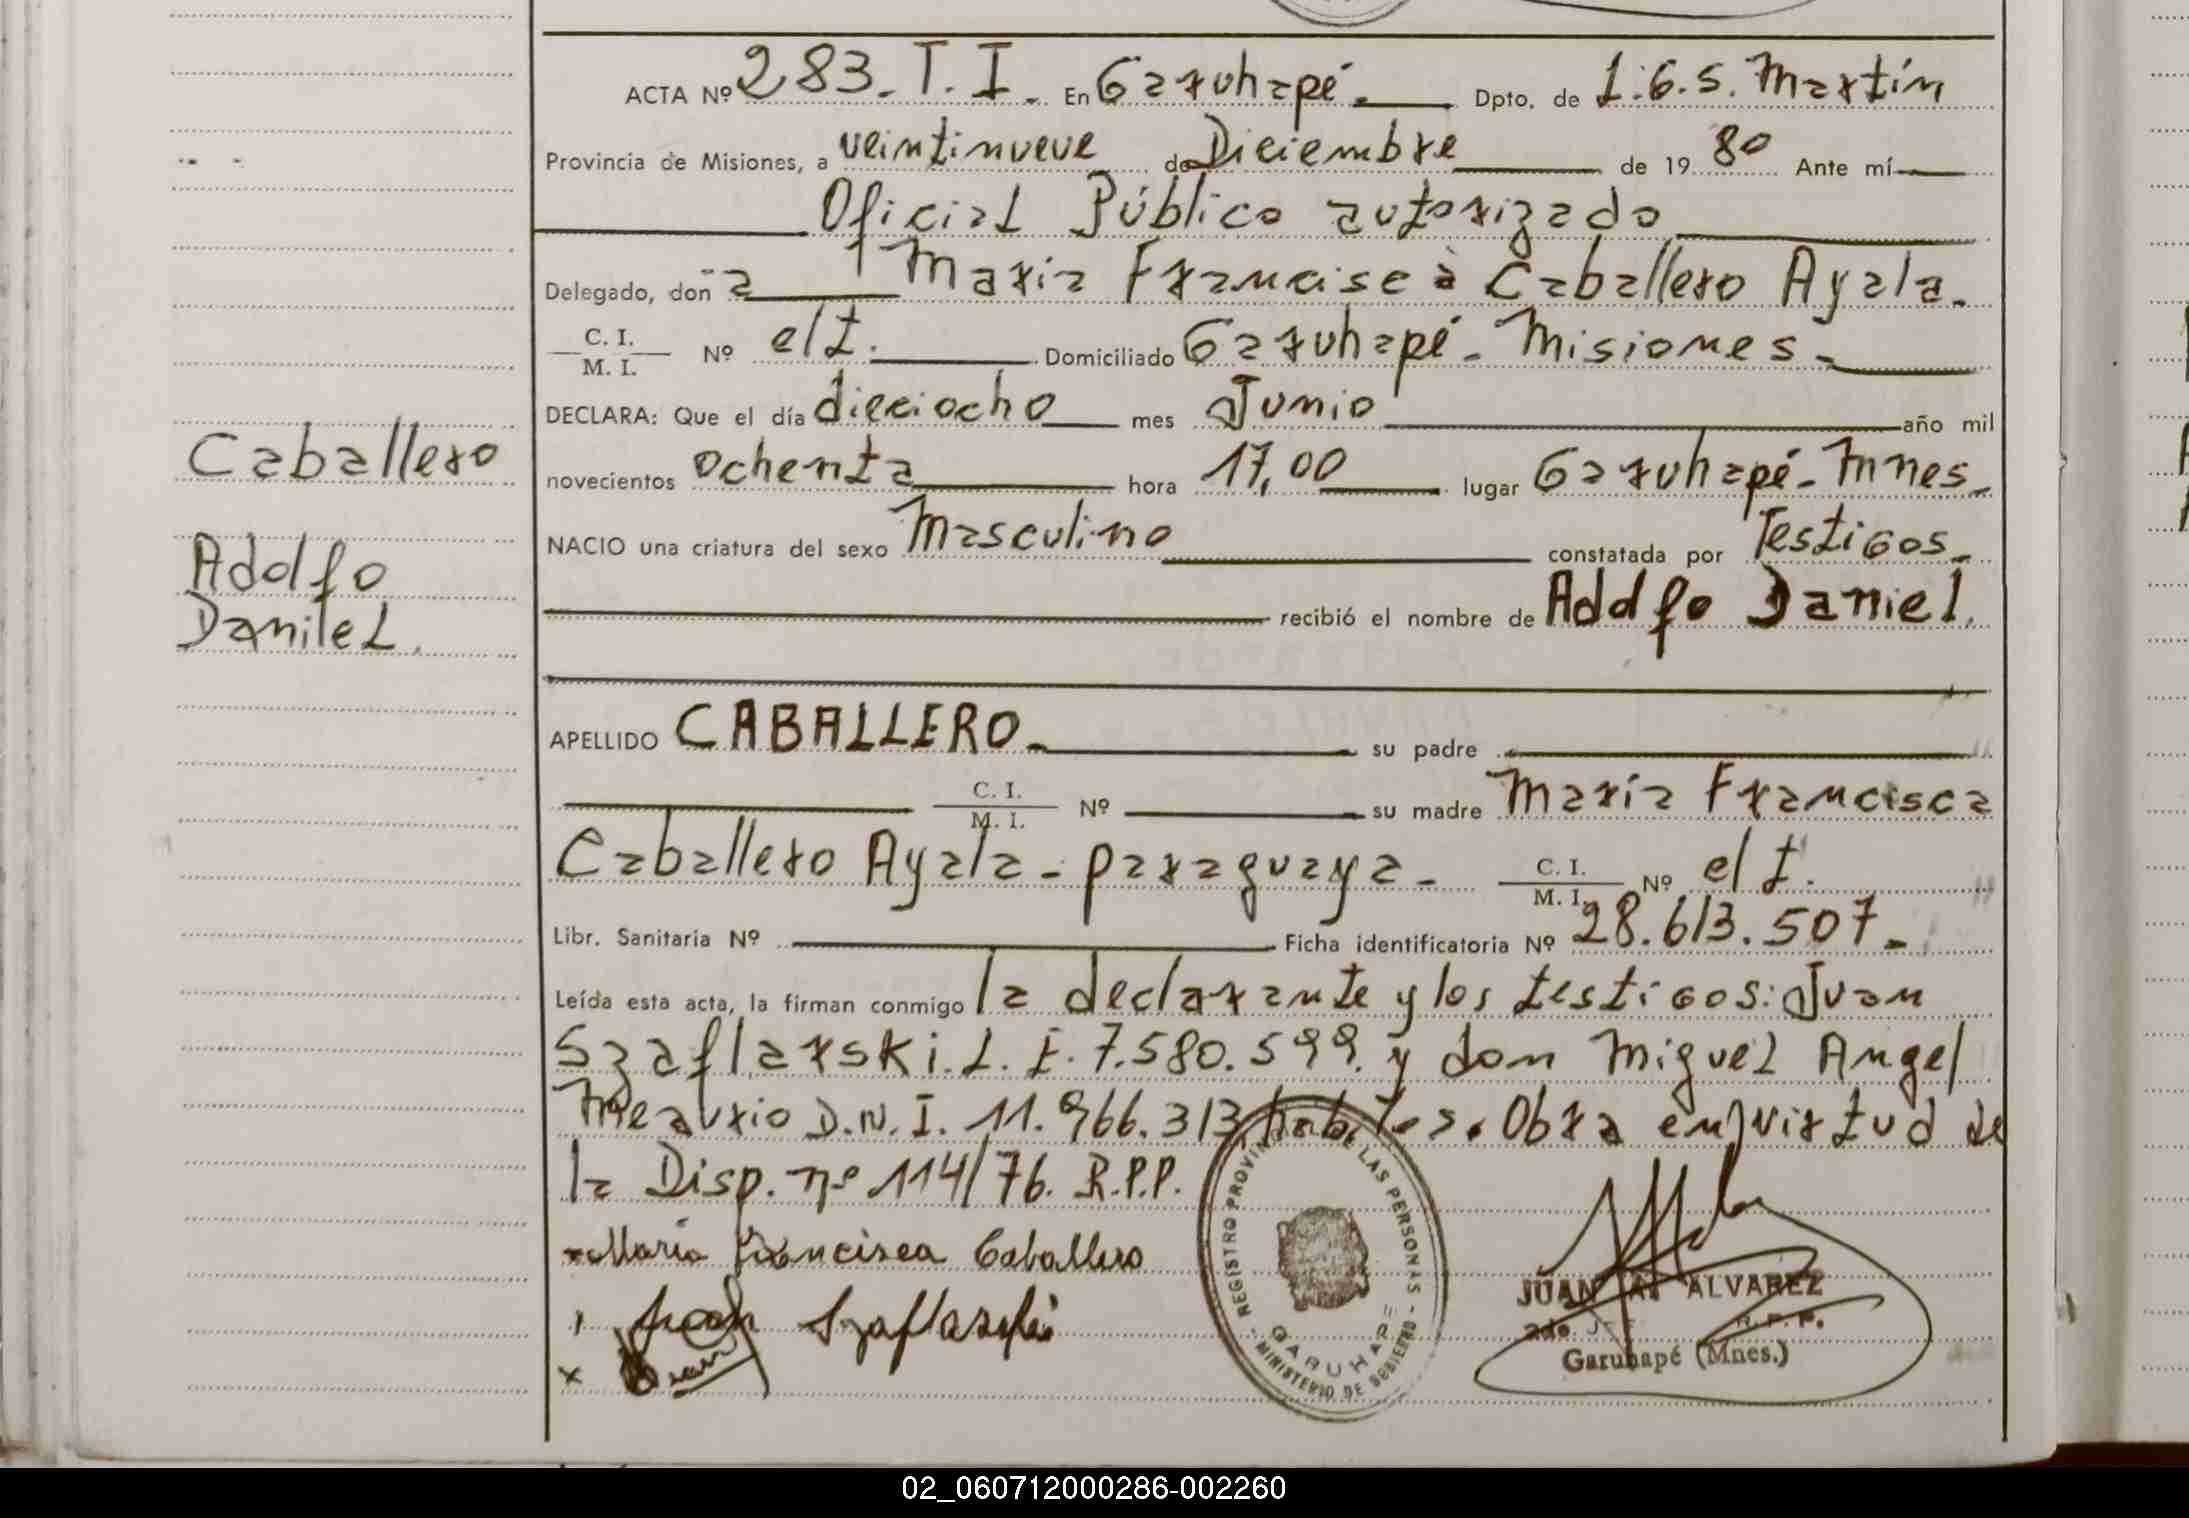 ACTA Nº 283. T. I. En Garuhapé. Dpto. de L.G.S. Martín
Provincia de Misiones, a veintinueve de Diciembre de 19 80 Ante mí
Oficial Público autorizado
Delegado, don a María Francisca Caballero Ayala.
C. I.
M. I. Nº el t. Domiciliado Garuhapé - Misiones -
DECLARA: Que el día dieciocho mes Junio año mil
novecientos ochenta hora 17,00 lugar Garuhapé - Mnes -
Caballero
NACIO una criatura del sexo Masculino constatada por Testigos -
Adolfo
recibió el nombre de Adolfo Daniel.
Daniel.
APELLIDO CABALLERO - su padre
C. I.
M. I. Nº su madre María Francisca
Caballero Ayala - paraguaya - C. I.
M. I. Nº el t.
Libr. Sanitaria Nº Ficha identificatoria Nº 28.613.507 -
Leída esta acta, la firman conmigo la declarante y los testigos: Juan
Szaflarski. L. E. 7.580.599. y don Miguel Angel
Meaurio D.N.I. 11.966.313, Obra en virtud de
la Disp. nº 114/76. R.P.P.
x María Francisca Caballero
Juan Szaflarski
x
REGISTRO PROVINCIAL DE LAS PERSONAS - MINISTERIO DE GOBIERNO -
GARUHAPE
JUAN A. ALVAREZ
2do JEFE R.P.P.
Garuhapé (Mnes.)
02_060712000286-002260